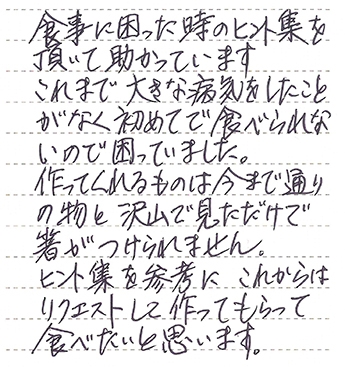 食事に困った時のヒント集を
頂いて助かっています
これまで大きな病気をしたこと
がなく初めてで食べられな
いので困っていました。
作ってくれるものは今まで通り
の物と沢山で見ただけで
箸がつけられません。
ヒント集を参考に これからは
リクエストして作ってもらって
食べたいと思います。